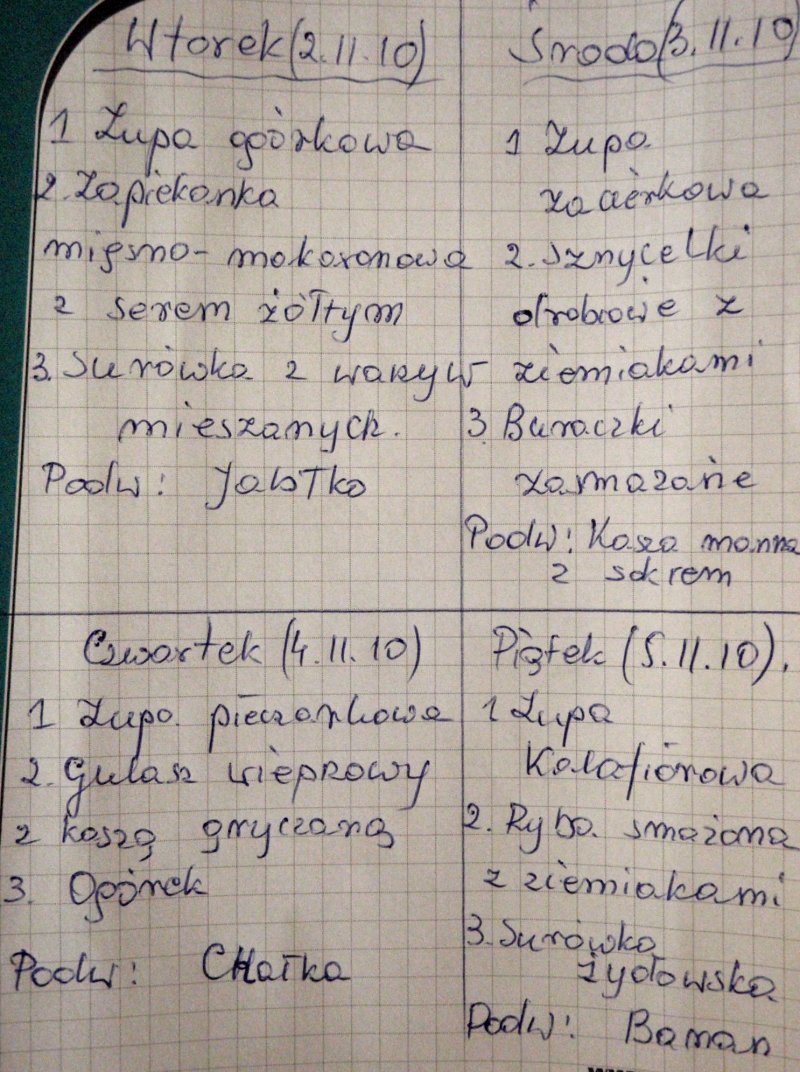 Wtorek (2.11.10)
1 Zupa ogórkowa
2. Zapiekanka
mięsno-makaronowa
z serem żółtym
3. Surówka z warzyw
mieszanych.
Podw: Jabłko
Środa (3.11.10)
1 Zupa
zacierkowa
2. Sznycelki
drobiowe z
ziemiakami
3 Buraczki
zasmażane
Podw: Kasza manna
z sokrem
Czwartek (4.11.10)
1 Zupa pieczarkowa
2. Gulasz wieprzowy
z kaszą gryczaną
3. Ogórek
Podw: CHałka
Piątek (5.11.10).
1 Zupa
Kalafiorowa
2. Ryba smażona
z ziemiakami
3. Surówka
żydowska
Podw: Banan